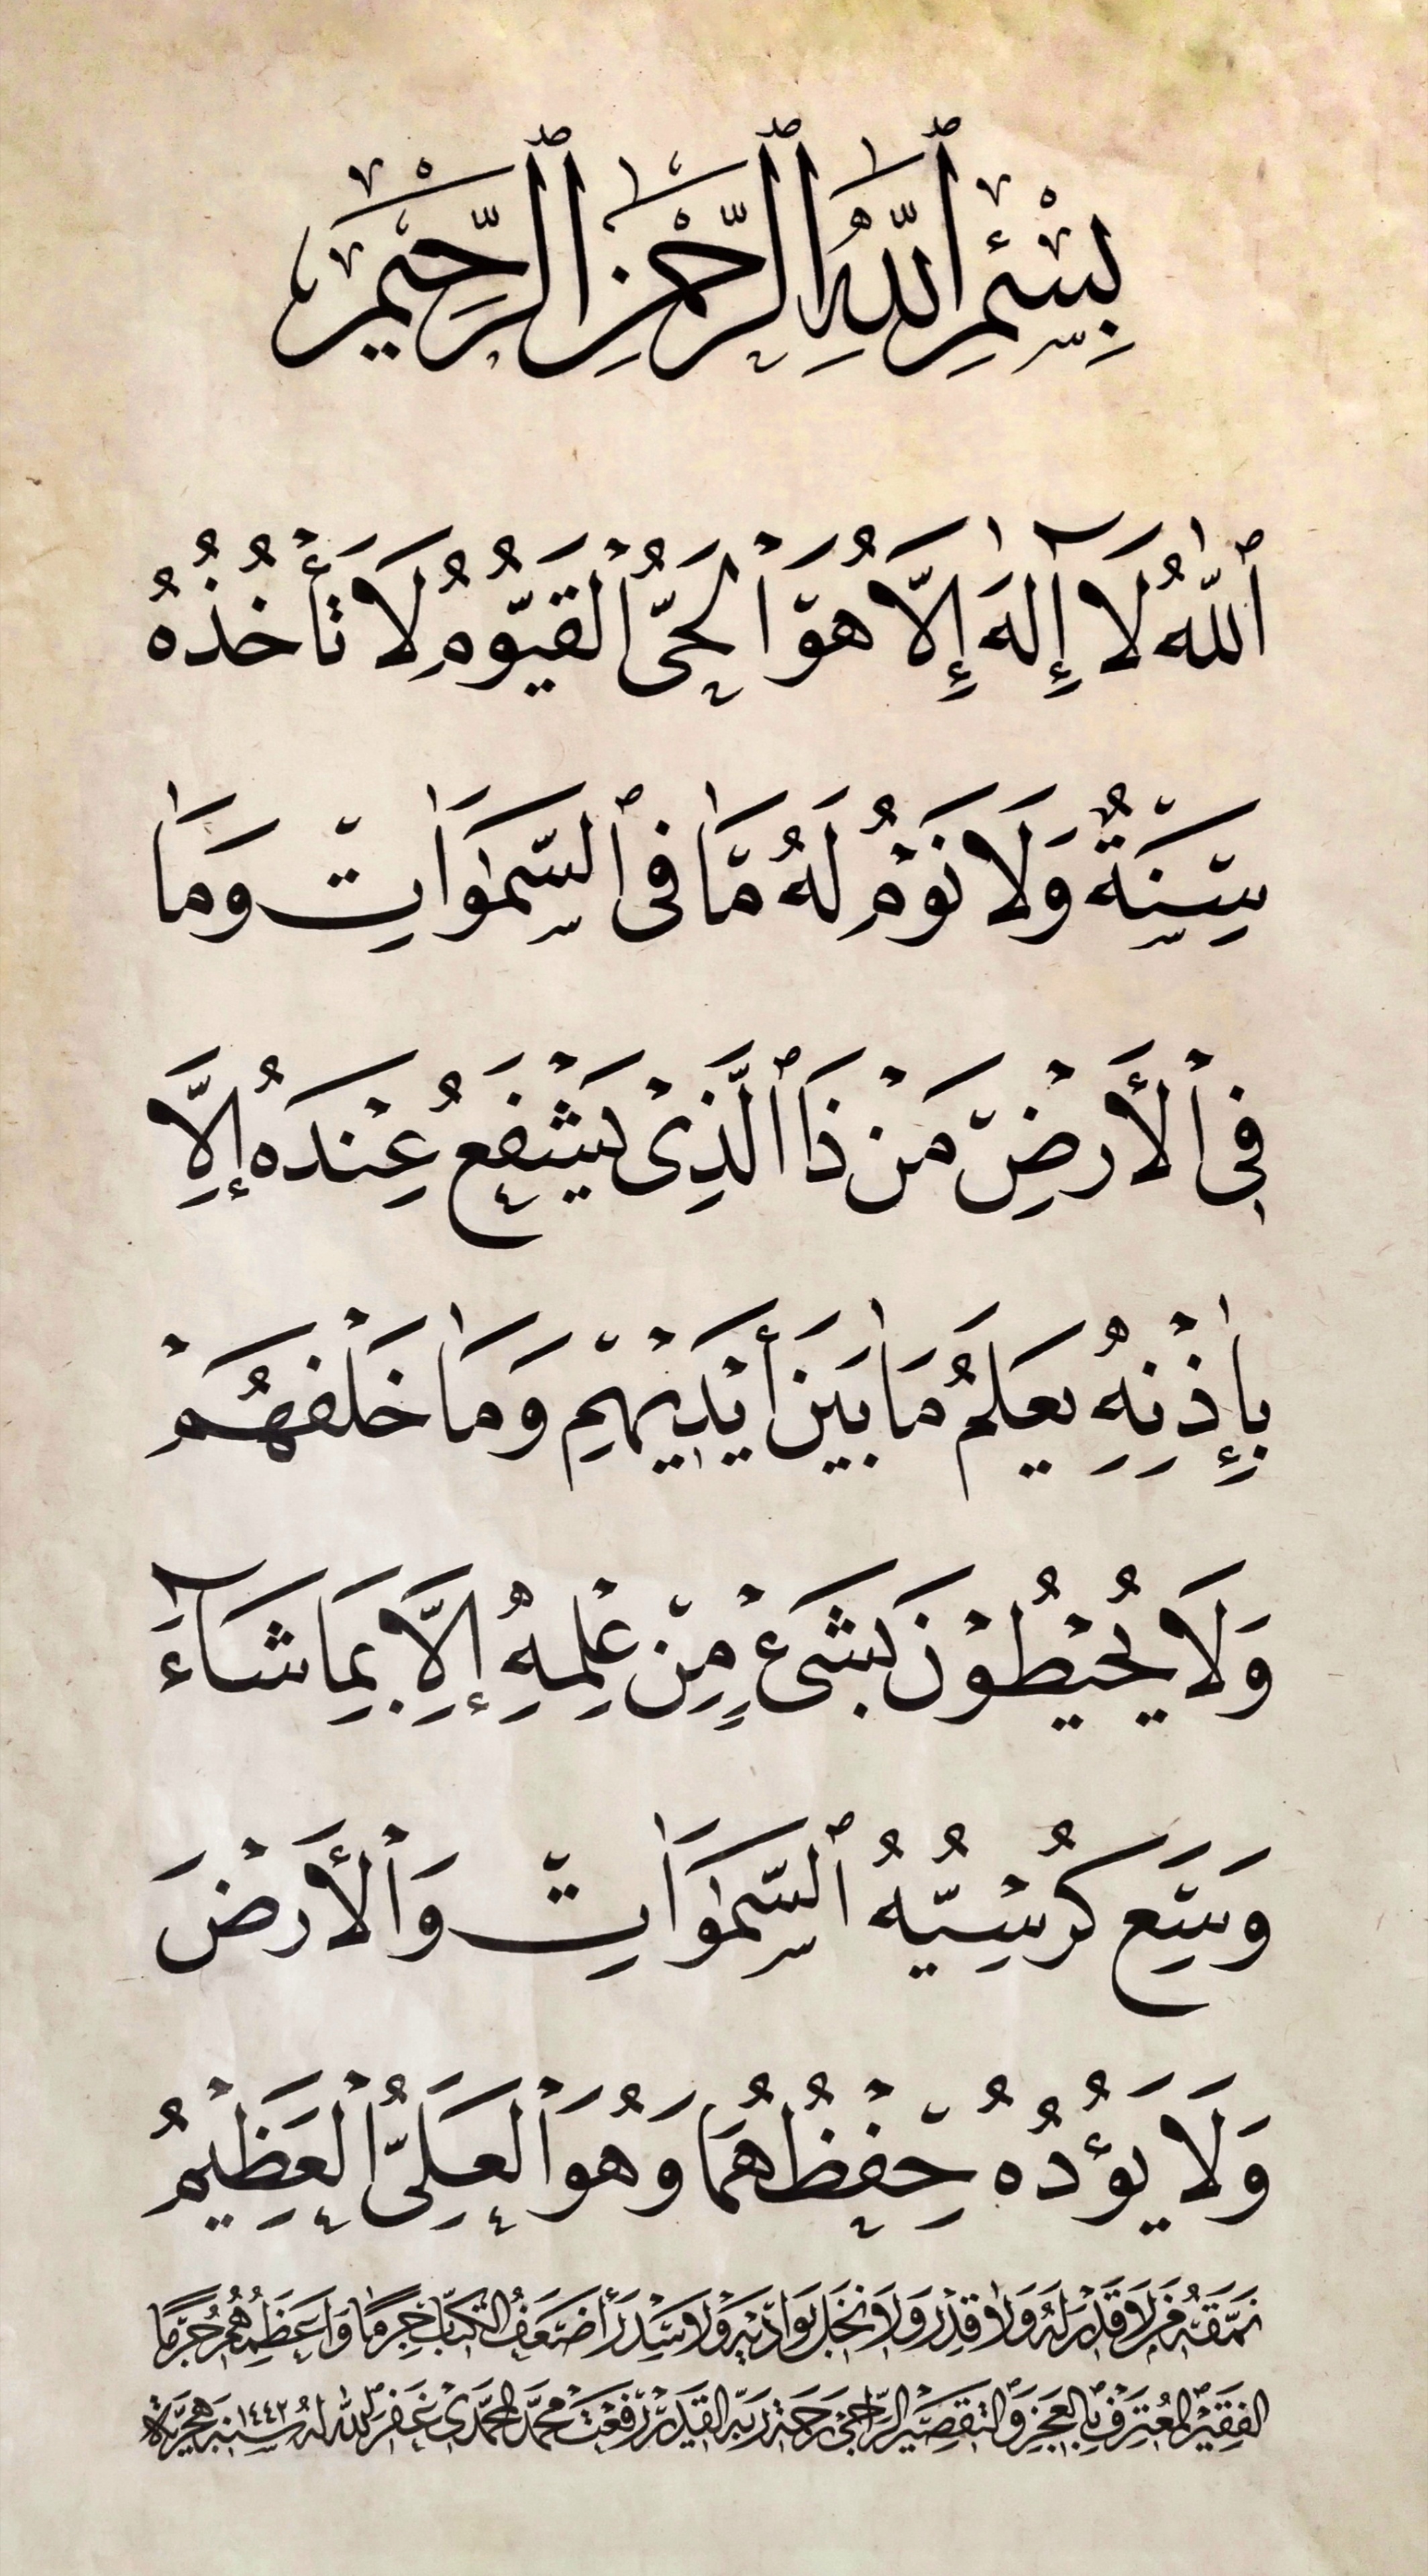 بِسْمِ ٱللَّهِ ٱلرَّحْمَٰنِ ٱلرَّحِيْمِ
ٱللّٰهُ لَآ إِلٰهَ إِلَّا هُوَ ٱلْحَيُّ ٱلْقَيُّوْمُ لَا تَأْخُذُهُ
سِنَةٌ وَلَا نَوْمٌ لَهُ مَا فِى ٱلسَّمٰوَاتِ وَمَا
فِى ٱلْأَرْضِ مَنْ ذَا ٱلَّذِىْ يَشْفَعُ عِنْدَهُ إِلَّا
بِإِذْنِهِ يَعْلَمُ مَا بَيْنَ أَيْدِيْهِمْ وَمَا خَلْفَهُمْ
وَلَا يُحِيْطُوْنَ بِشَىْءٍ مِنْ عِلْمِهِ إِلَّا بِمَا شَآءَ
وَسِعَ كُرْسِيُّهُ ٱلسَّمٰوَاتِ وَٱلْأَرْضَ
وَلَا يَؤُدُهُ حِفْظُهُمَا وَهُوَ ٱلْعَلِىُّ ٱلْعَظِيْمُ
نمقه من لا قدر له ولا قدر ولا نخل بواديه ولا سدر أضعف الكتاب جرما وأعظمهم جرما
الفقير المعترف بالعجز والتقصير الراجى رحمة ربه القدير رفعت محمد المحمدى غفر الله له سنة ١٤٤٢ هجرية